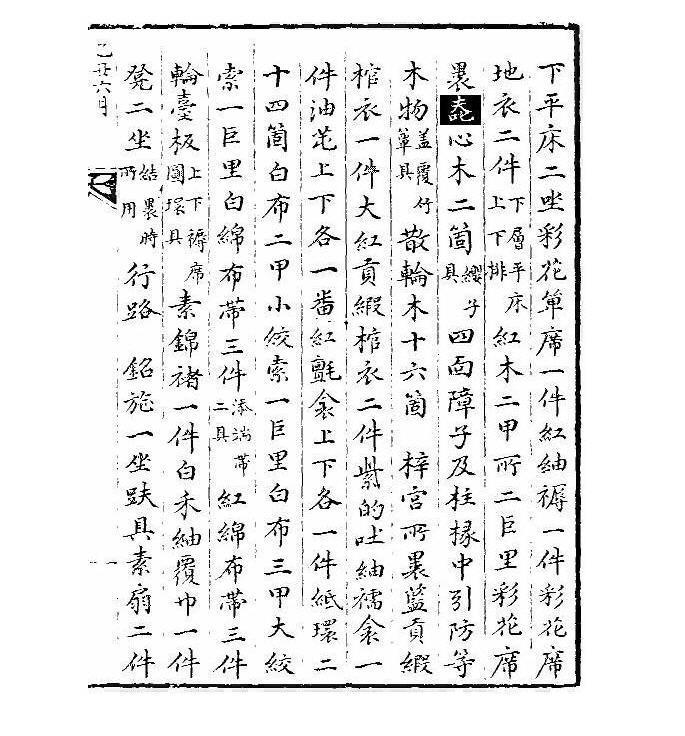 下平床二坐彩花单席一件紅紬褥一件彩花席
地衣二件下層平床上下排紅木二甲所二巨里彩花席
裹心木二箇纓子具四面障子及柱椽中引防等
木物盖覆竹簟具散輪木十六箇 梓宮所裹藍貢緞
棺衣一件大紅貢緞棺衣二件紫的吐紬襦衾一
件油芚上下各一番紅氈衾上下各一件紙環二
十四箇白布二甲小絞索一巨里白布三甲大絞
索一巨里白綿布帶三件添湍帶二具紅綿布帶三件
輪臺板上下褥席圓環具素錦褚一件白禾紬覆巾一件
凳二坐結裹時所用行路 銘旌一坐趺具素扇二件
乙丑六月